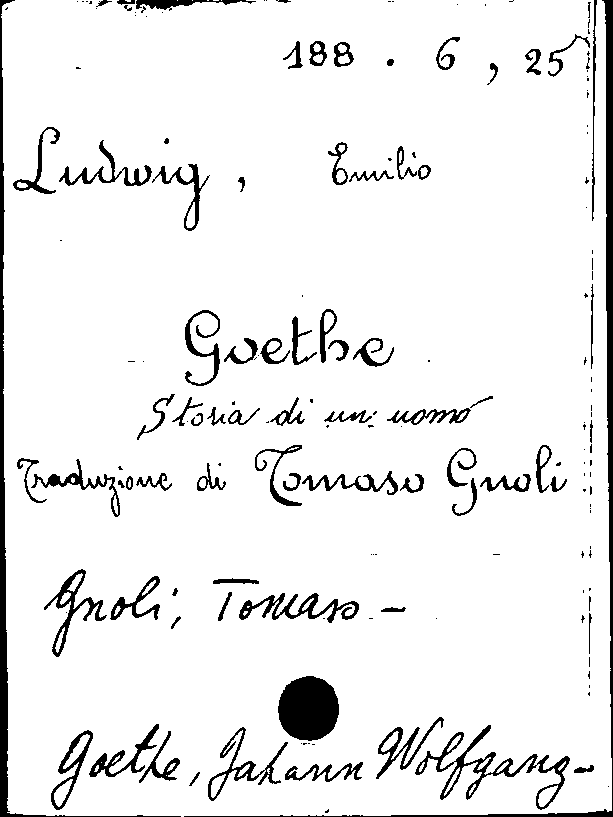 188 . 6 , 25
Ludwig , Emilio
Goethe
Storia di un uomo
Traduzione di Tomaso Gnoli
Gnoli, Tomaso -
Goethe, Johann Wolfgang -